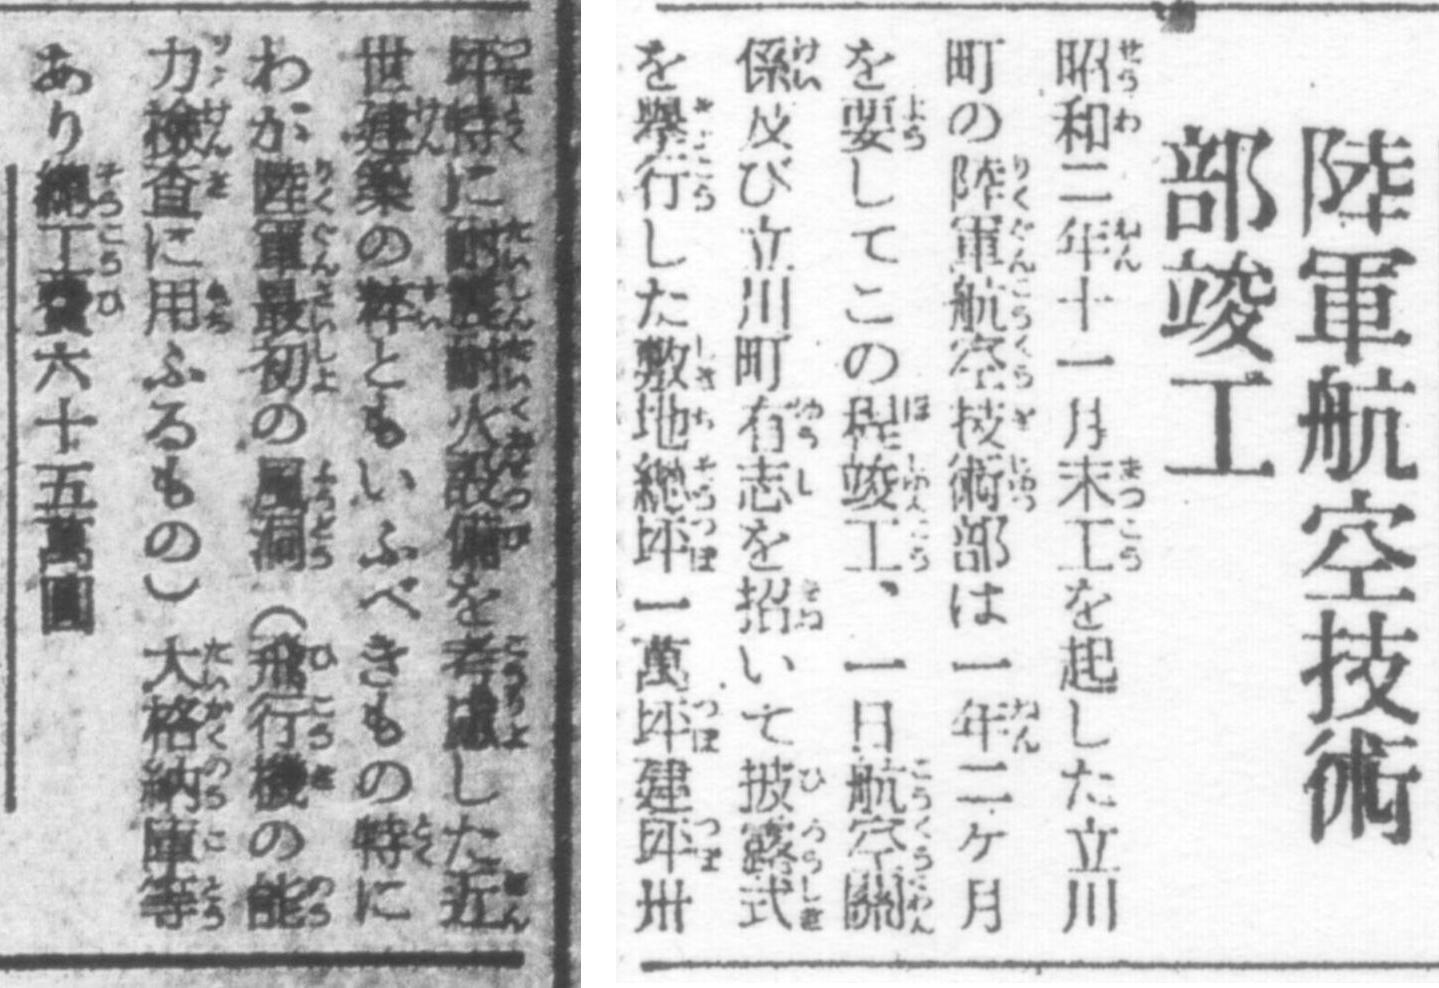 陸軍航空技術
部竣工
昭和二年十一月末工を起した立川
町の陸軍航空技術部は一年二ケ月
を要してこの程竣工、一日航空關
係及び立川町有志を招いて披露式
を擧行した敷地總坪一萬坪建坪卅
坪特に耐震耐火設備を考慮した近
世建築の粹ともいふべきもの特に
わが陸軍最初の風洞(飛行機の能
力檢査に用ふるもの)大格納庫等
あり總工費六十五萬圓